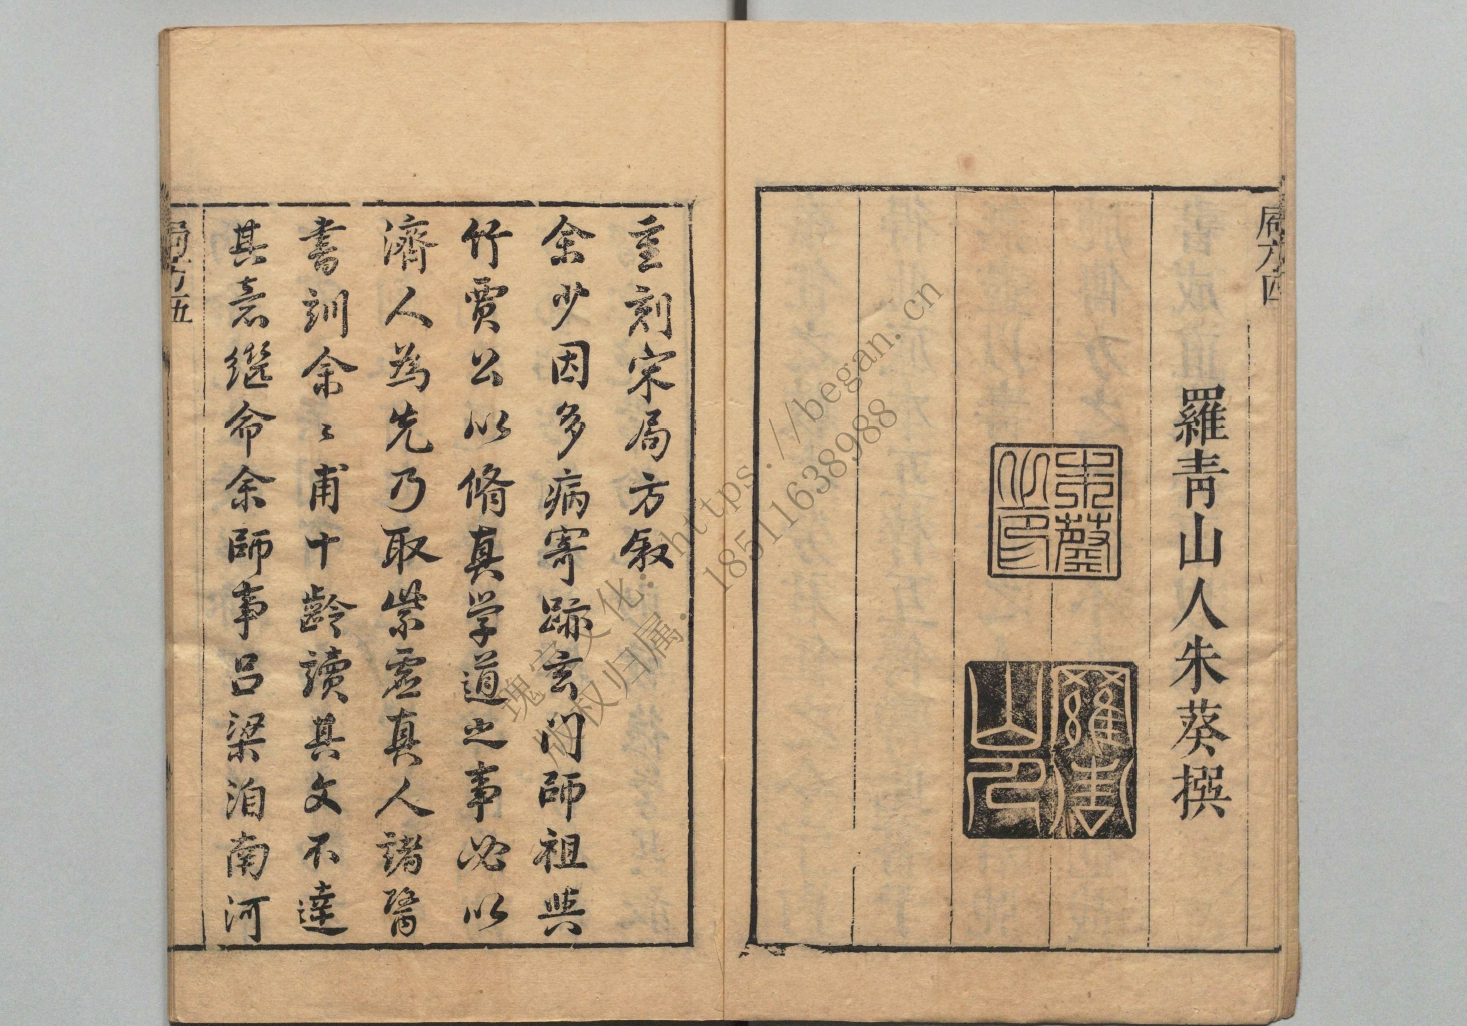 局方四
羅青山人朱葵撰
朱葵之印
重刻宋局方叙
余少因多病寄跡玄門師祖與
竹賈公以脩真学道之事必以
濟人為先乃取紫虛真人諸醫
書訓余〻甫十齡讀其文不達
其意繼命余師事呂梁洎南河
局方五
瑰宝文化:https://began.cn
权归属:18511638988